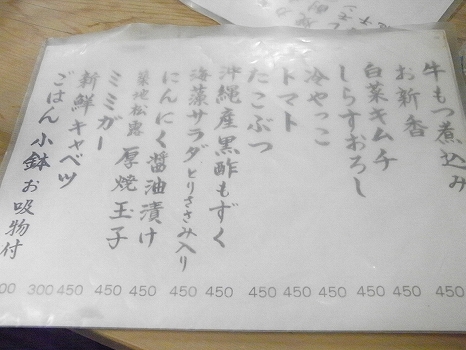 牛もつ煮込み 450
お新香 450
白菜キムチ 450
しらすおろし 450
冷やっこ 450
トマト 450
たこぶつ 450
沖縄産黒酢もずく 450
海藻サラダ とりささみ入り 450
にんにく醤油漬け 450
築地松露 厚焼玉子 450
ミミガー 450
新鮮キャベツ 450
ごはん 小鉢 お吸物付 300